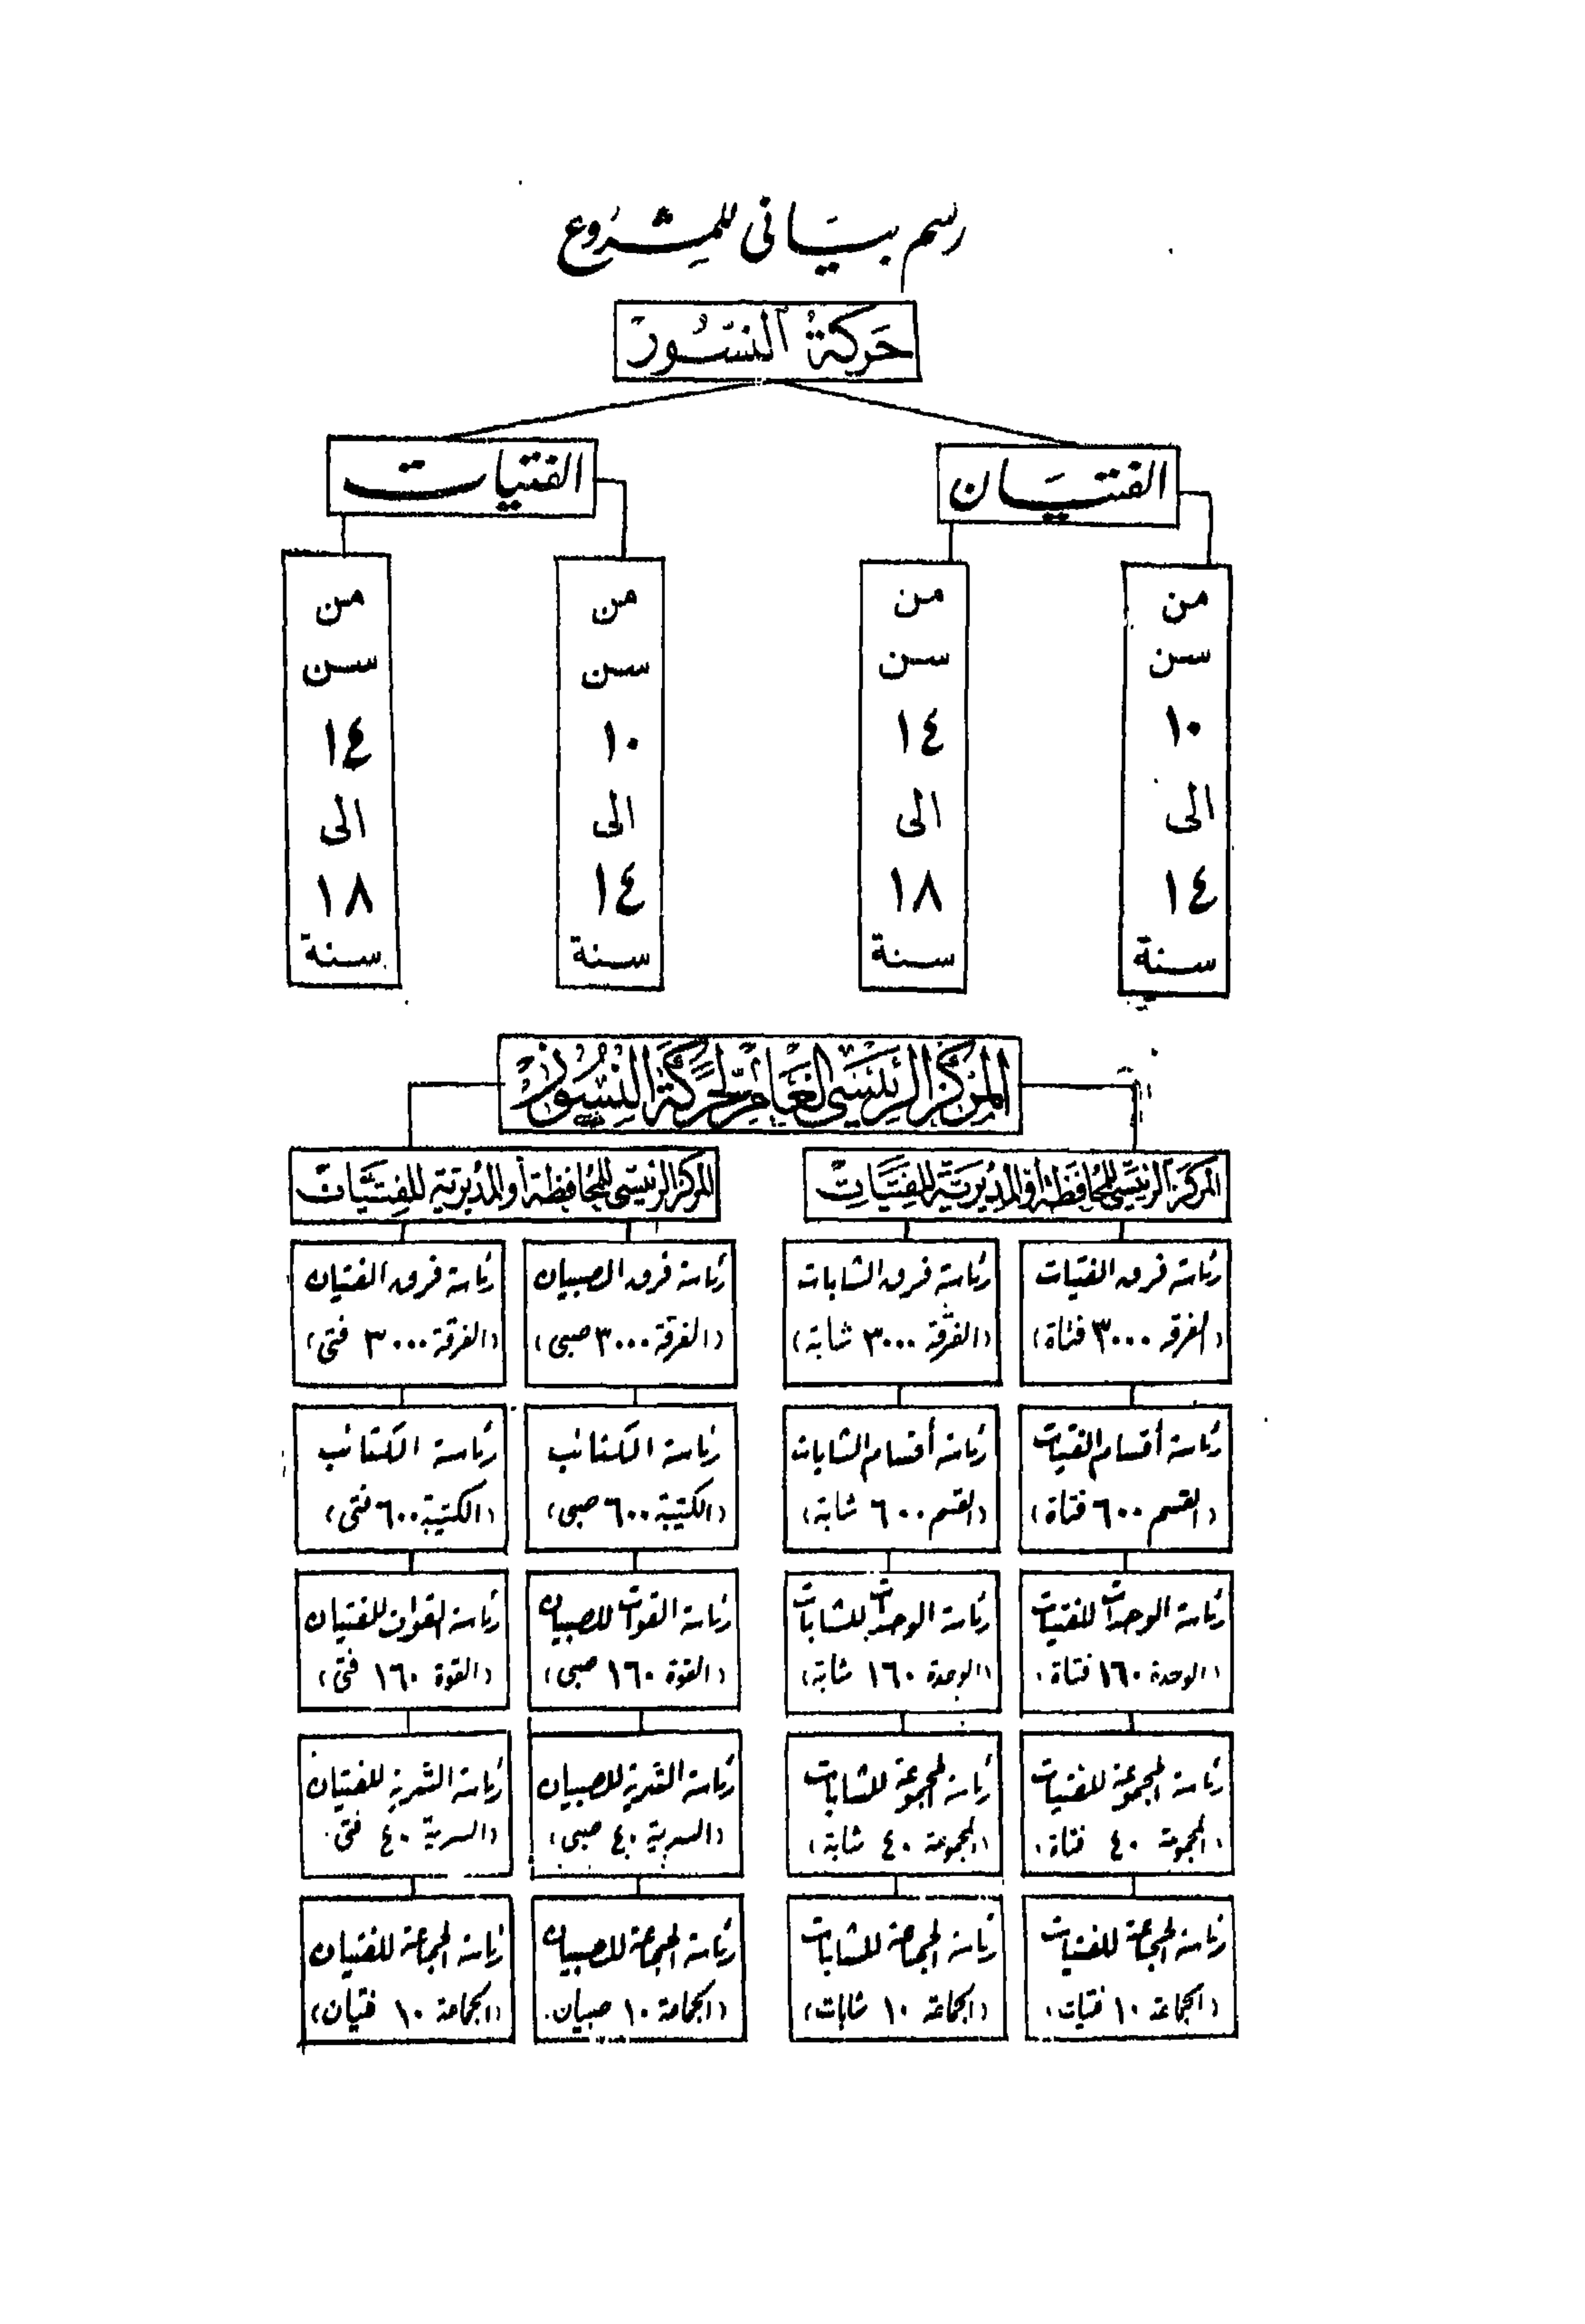 رسم بياني للمشروع
حركة النسور
الفتيان
الفتيات
من
سن
١٠
الى
١٤
سنة
من
سن
١٤
الى
١٨
سنة
من
سن
١٠
الى
١٤
سنة
من
سن
١٤
الى
١٨
سنة
المركز الرئيسى العام لحركة النسور
المركز الرئيسى للمحافظة أو المديرية للفتيات
المركز الرئيسى للمحافظة أو المديرية للفتيان
رئاسة فرق الفتيات
(الفرقة ٣٠٠٠ فتاة)
رئاسة فرق الشابات
(الفرقة ٣٠٠٠ شابة)
رئاسة فرق الصبيان
(الفرقة ٣٠٠٠ صبى)
رئاسة فرق الفتيان
(الفرقة ٣٠٠٠ فتى)
رئاسة أقسام الفتيات
(القسم ٦٠٠ فتاة)
رئاسة أقسام الشابات
(القسم ٦٠٠ شابة)
رئاسة الكتائب
(الكتيبة ٦٠٠ صبى)
رئاسة الكتائب
(الكتيبة ٦٠٠ فتى)
رئاسة الوحدات للفتيات
(الوحدة ١٦٠ فتاة)
رئاسة الوحدات للشابات
(الوحدة ١٦٠ شابة)
رئاسة القوات للصبيان
(القوة ١٦٠ صبى)
رئاسة القوات للفتيان
(القوة ١٦٠ فتى)
رئاسة المجموعة للفتيات
(المجموعة ٤٠ فتاة)
رئاسة المجموعة للشابات
(المجموعة ٤٠ شابة)
رئاسة السرية للصبيان
(السرية ٤٠ صبى)
رئاسة السرية للفتيان
(السرية ٤٠ فتى)
رئاسة الجماعة للفتيات
(الجماعة ١٠ فتيات)
رئاسة الجماعة للشابات
(الجماعة ١٠ شابات)
رئاسة الجماعة للصبيان
(الجماعة ١٠ صبيان)
رئاسة الجماعة للفتيان
(الجماعة ١٠ فتيان)